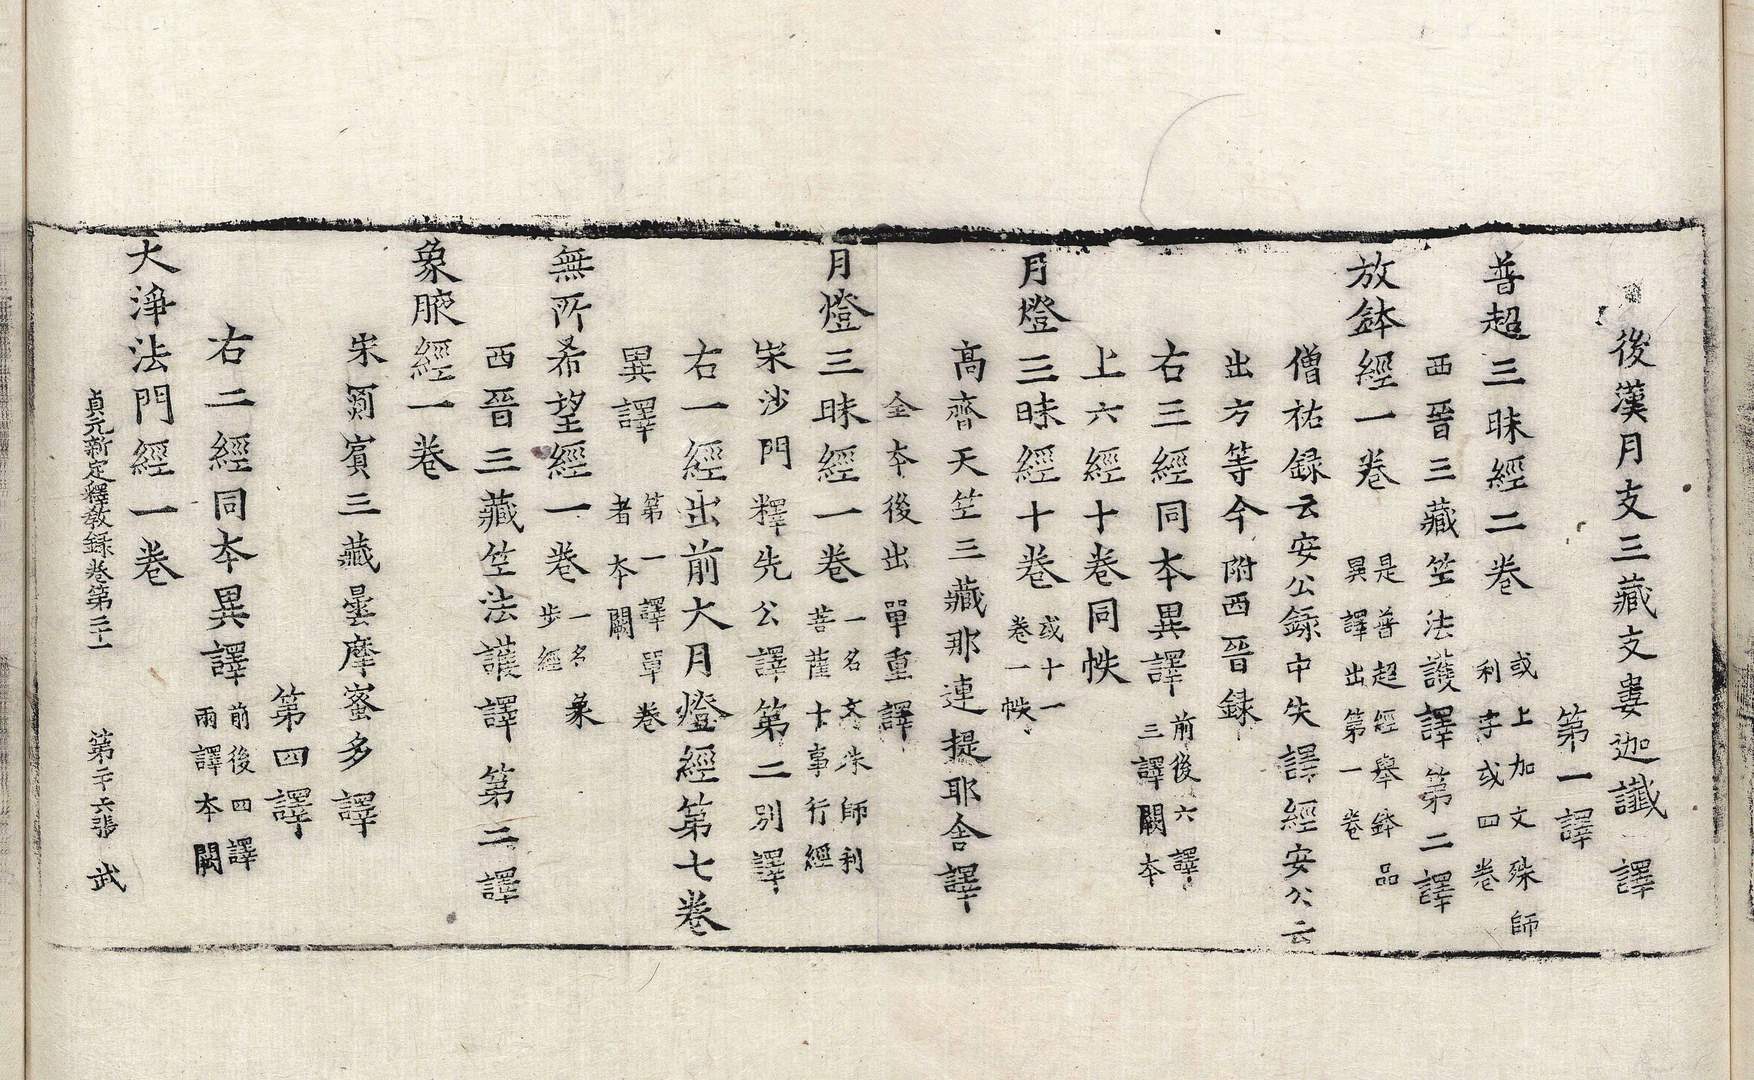 後漢月支三藏支婁迦讖譯
第一譯
普超三昧經二卷 或上加文殊師
利字或四卷
西晉三藏竺法護譯第二譯
放鉢經一卷 是普超經舉鉢品
異譯出第一卷
僧祐録云安公録中失譯經安公云
出方等今附西晉録
右三經同本異譯 前後六譯
三譯闕本
上六經十卷同帙
月燈三昧經十卷 或十一
卷一帙
高齊天竺三藏那連提耶舍譯
全本後出單重譯
月燈三昧經一卷 一名文殊師利
菩薩十事行經
宋沙門釋先公譯第二別譯
右一經出前大月燈經第七卷
異譯 第一譯單卷
者本闕
無所希望經一卷 一名象
步經
西晉三藏竺法護譯第二譯
象腋經一卷
宋罽賓三藏曇摩蜜多譯
第四譯
右二經同本異譯 前後四譯
兩譯本闕
大淨法門經一卷
貞元新定釋教録卷第二十一 第二十六張 武